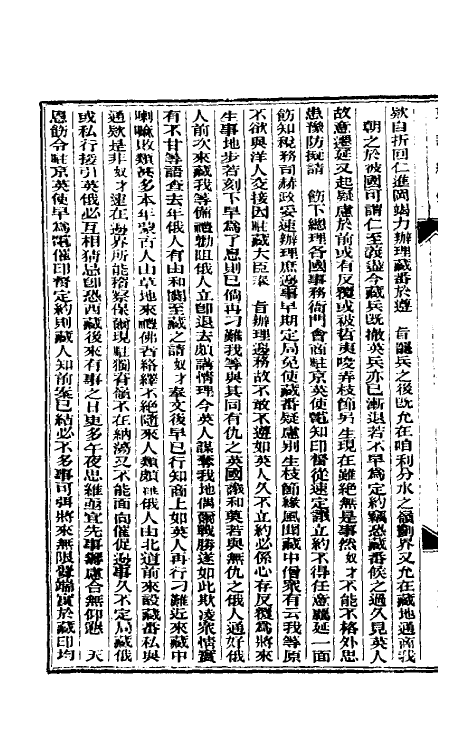 欵自折回仁進岡竭力辦理藏番於遵　旨罷兵之後既允在咱利分水之嶺劃界又允在藏地通商我
朝之於彼國可謂仁至義盡今藏兵既撤英兵亦已漸退若不早為定約竊恐藏番候之過久見英人
故意遷延又起疑慮於前或有反覆或被苦夷唆弄枝節另生現在雖絕無是事然奴才不能不格外思
患豫防擬請　飭下總理各國事務衙門會商駐京英使電知印督從速定議立約不得任意羈延一面
飭知稅務司赫政妥速辦理庶邊事早期定局免使藏番疑慮別生枝節緣風聞藏中僧眾有云我等原
不欲與洋人交接因駐藏大臣奉　旨辦理邊務故不敢不遵如英人久不立約必係心存反覆為將來
生事地步若刻下早為了息則已倘再刁難我等與其同有仇之英國議和莫若與無仇之俄人通好俄
人前次來藏我等備禮勸阻俄人立卽退去頗講情理今英人謀奪我地偶爾戰勝遂如此欺凌眾情實
有不甘等語查去年俄人有由和闐至藏之請奴才奉文後早已行知商上如英人再行刁難近來藏中
喇嘛敗類甚多本年蒙古人由草地來禮佛者絡繹不絕隨來人類頗 俄人由北道前來設藏番私與
通欵是非奴才遠在邊界所能稽察保顧現駐獨脊嶺不在納蕩又不能面向催促邊事久不定局藏俄
或私行接引英俄必互相猜忌卽恐西藏後來有事之日更多午夜思維亟宜先事籌慮合無仰懇　天
恩飭令駐京英使早為電催印督定約則藏人知前案已結必不多事可弭將來無限釁端實於藏印均